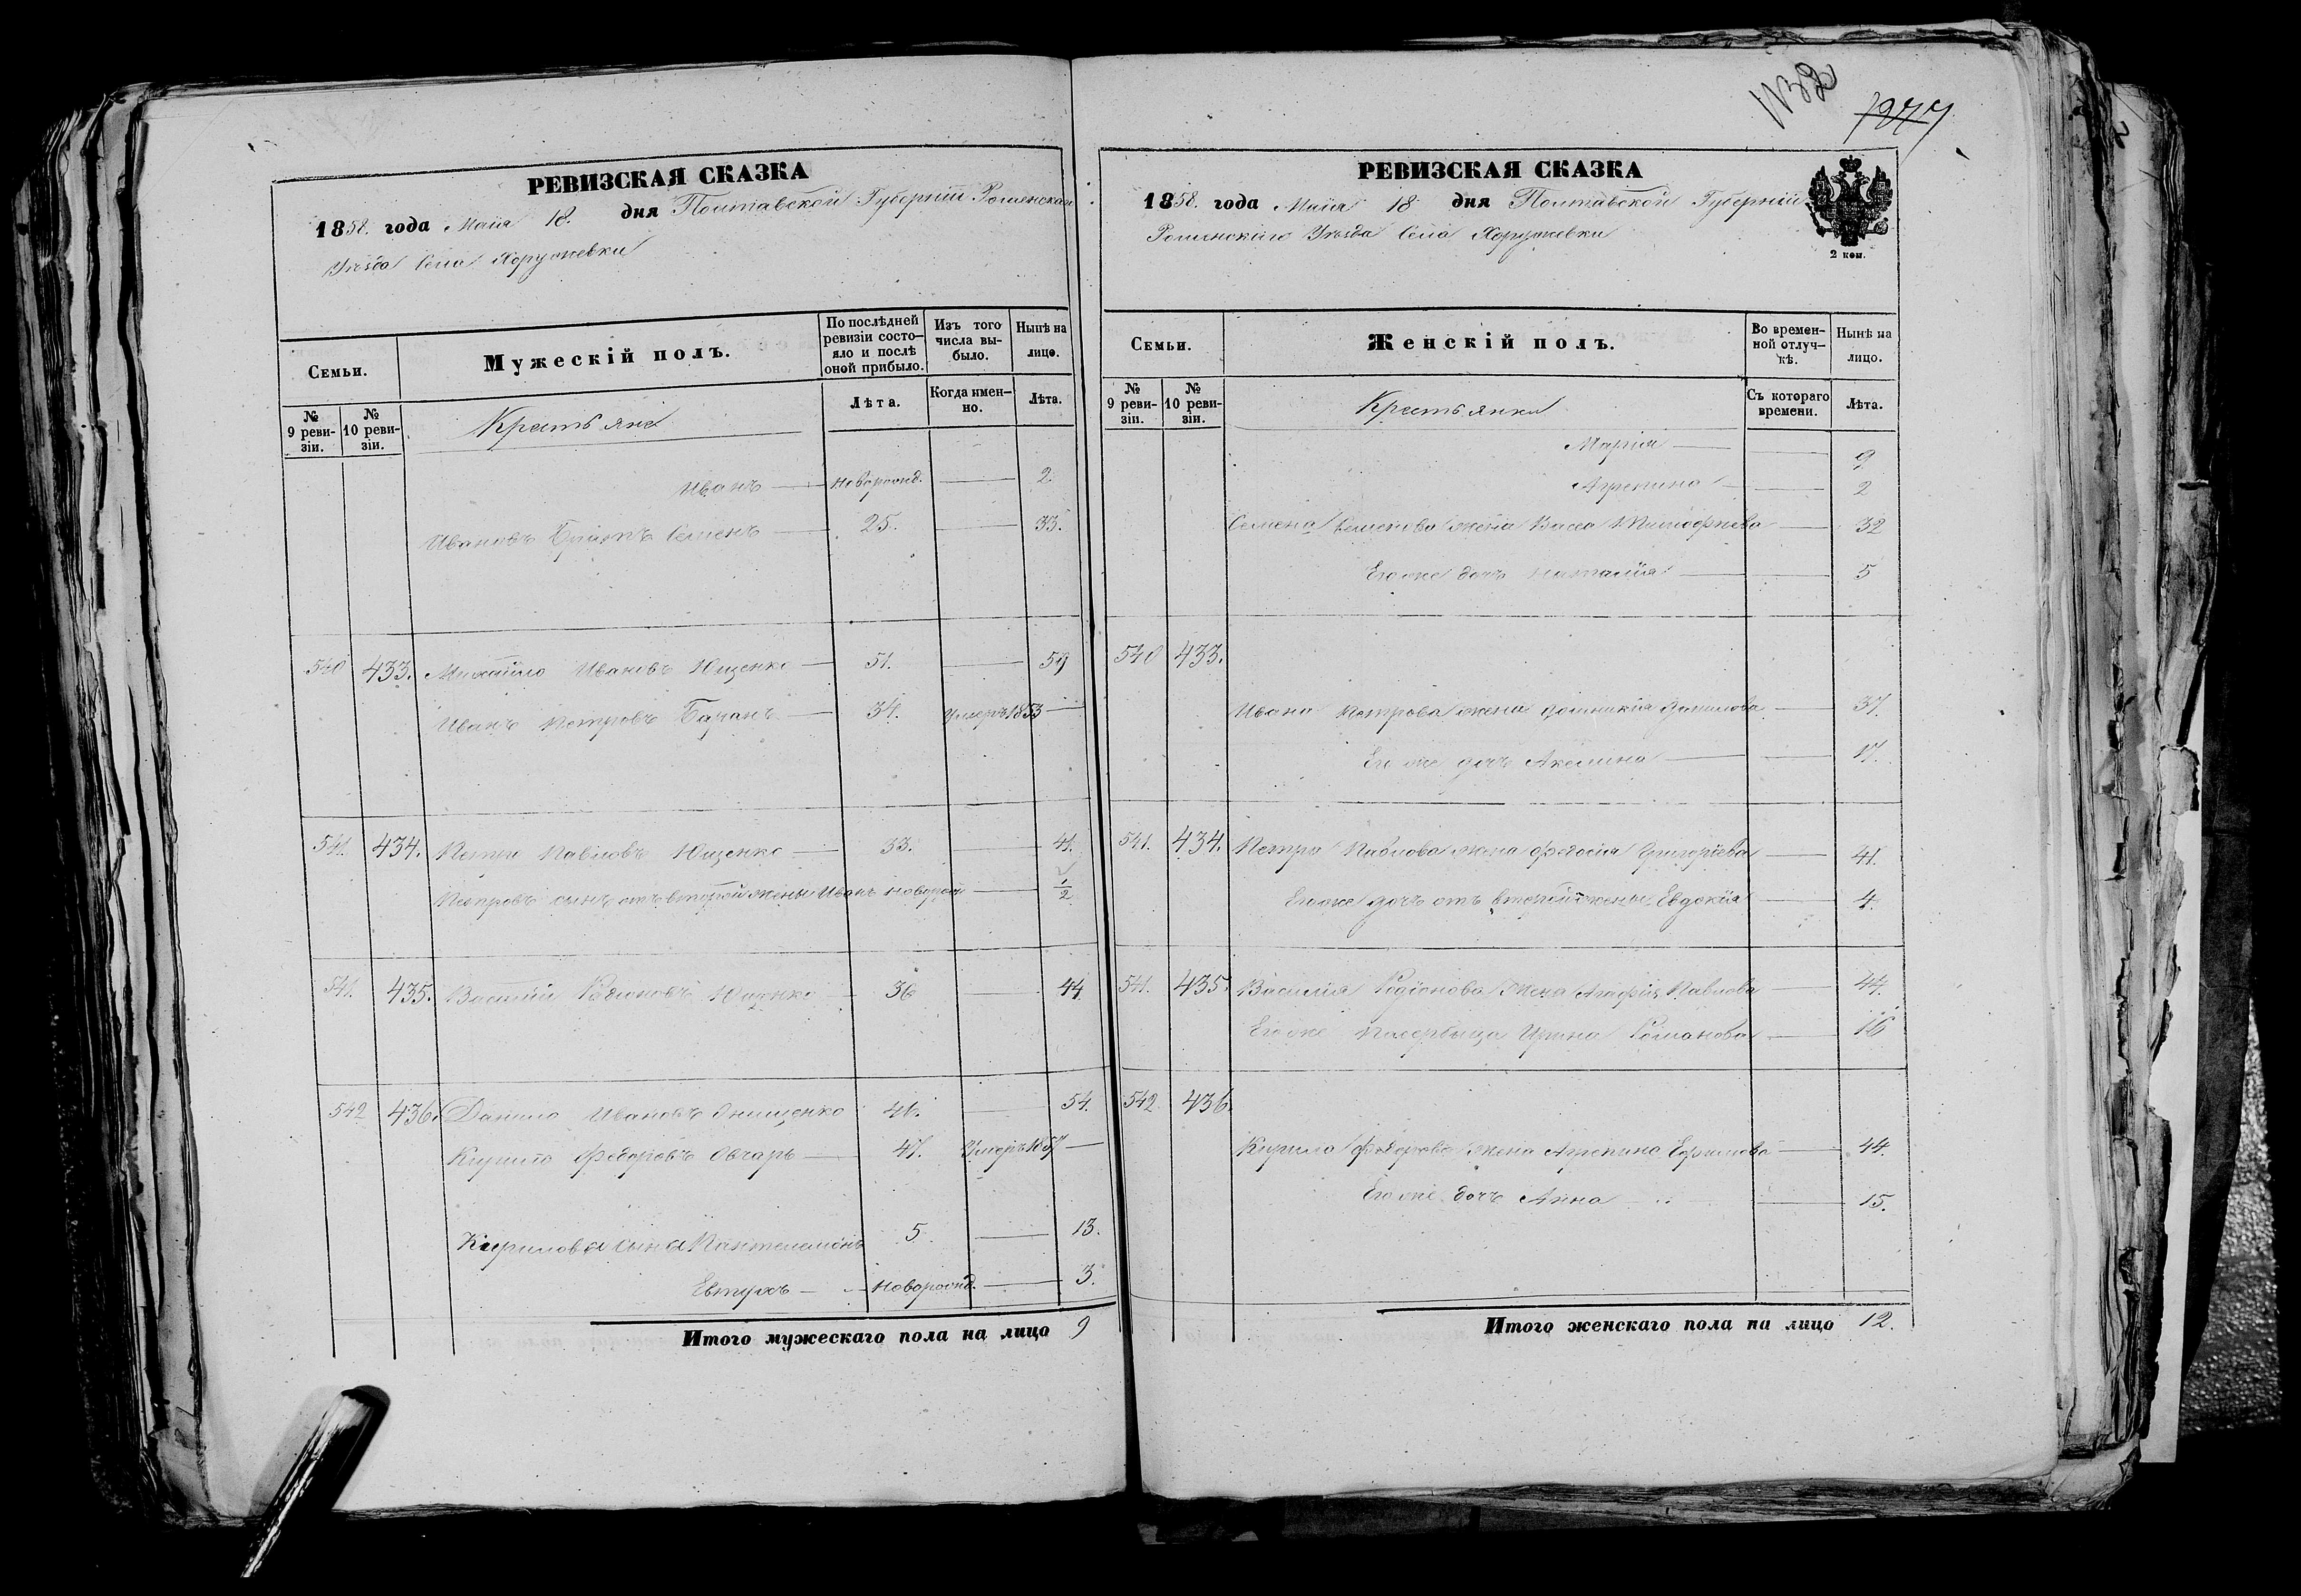 РЕВИЗСКАЯ СКАЗКА
1858. года Маія 18. дня Полтавской Губерніи Роменскаго
Уѣзда Села Хоружевки
Семьи.
Мужескій полъ.
По послѣдней ревизіи состояло и послѣ оной прибыло.
Изъ того числа выбыло.
Нынѣ на лицо.
№ 9 ревизіи.
№ 10 ревизіи.
Крестьяне
Лѣта.
Когда именно.
Лѣта.
Иванъ — Новорожд. — 2.
Ивановъ Семенъ — 25. — 33.
540 433. Михайло Ивановъ Ющенко — 51. — 59
Иванъ Петровъ — 34. Умеръ 1853 —
541. 434. Петро Павловъ Ющенко — 33. — 41.
Петровъ сынъ отъ второй жены Иванъ новорож — 1/2
541. 435. Василій Родіоновъ Ющенко — 36 — 44.
542 436. Данило Ивановъ Онищенко 46. — 54.
Кирило Федоровъ Овчаръ — 47. Умеръ 1857 —
Кирилова сына Пантелемонъ 5. — 13.
Евтухъ — Новорожд. — 3.
Итого мужескаго пола на лицо 9
1277
РЕВИЗСКАЯ СКАЗКА
1858. года Маія 18 дня Полтавской Губерніи
Роменскаго Уѣзда Села Хоружевки
2 коп.
Семьи.
Женскій полъ.
Во временной отлучкѣ.
Нынѣ на лицо.
№ 9 ревизіи.
№ 10 ревизіи.
Крестьянки
Съ котораго времени.
Лѣта.
Марія — 9
Агрепина — 2
Семена Семенова жена Васса Тимофѣева — 32
Его же дочь Наталія — 5
540 433.
Ивана Петрова жена Домникія Данилова — 37.
Его же дочь Акелина — 17.
541. 434. Петра Павлова жена Феодосія Григоріева — 41.
Его же дочь отъ второй жены Евдокія — 4.
541. 435. Василія Родіонова Жена Агафія Павлова — 44.
Его же Ирина Романова — 16
542 436.
Кирила Федорова жена Агрепина Ефимова — 44.
Его же дочь Анна — 15.
Итого женскаго пола на лицо 12.